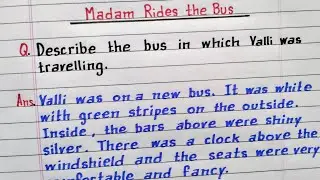 Madam Rides the Bus
Q. Describe the bus in which Valli was
travelling.
Ans. Valli was on a new bus. It was white
with green stripes on the outside.
Inside, the bars above were shiny
silver. There was a clock above the
windshield and the seats were very
comfortable and fancy.